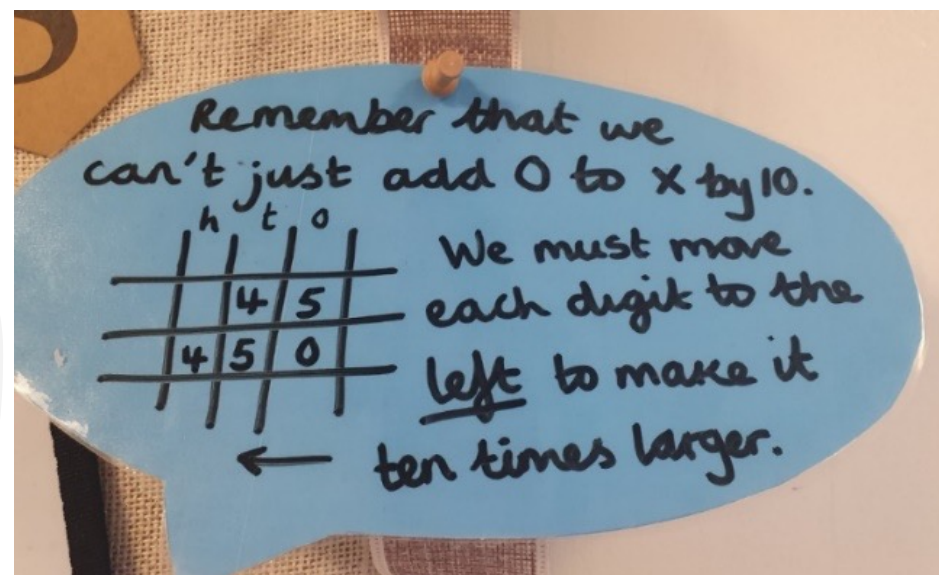 Remember that we
can't just add 0 to x by 10.
h t o
We must move
4 5
each digit to the
4 5 0
left to make it
← ten times larger.